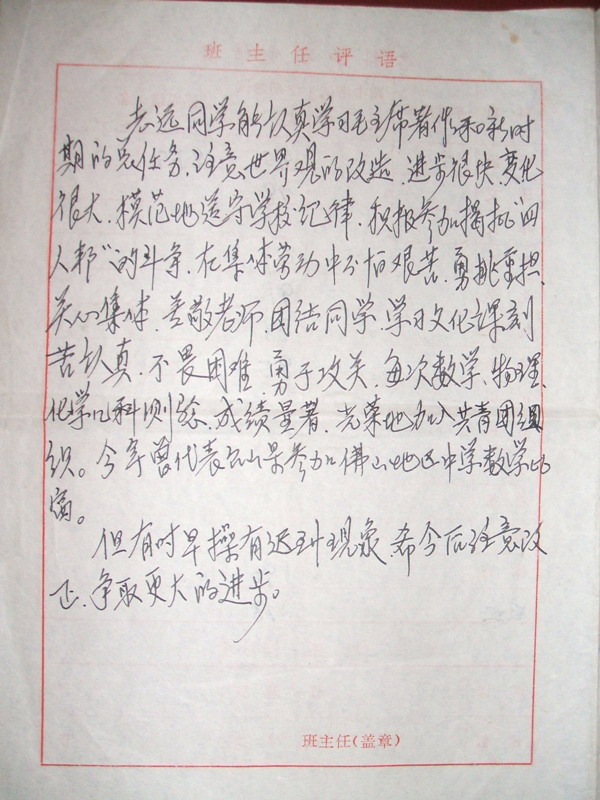 班主任评语
志远同学能认真学习毛主席著作和新时
期的总任务.注意世界观的改造.进步很快.变化
很大.模范地遵守学校纪律.积极参加揭批“四
人邦”的斗争.在集体劳动中不怕艰苦.勇挑重担.
关心集体.尊敬老师.团结同学.学习文化课刻
苦认真.不畏困难.勇于攻关.每次数学、物理、
化学几科测验.成绩显著.光荣地加入共青团组
织。今年曾代表县参加佛山地区中学数学比
赛。
但有时早操有迟到现象.希今后注意改
正.争取更大的进步。
班主任(盖章)